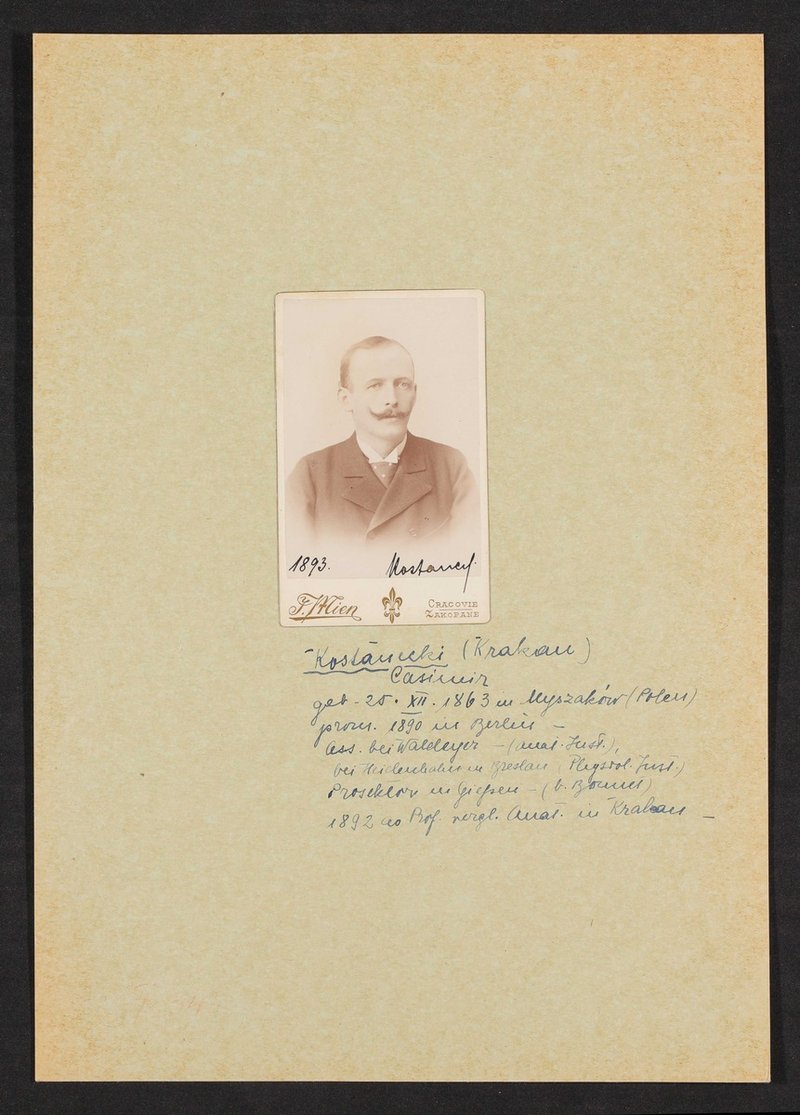 1893. Kostanecki
J. Mien CRACOVIE
ZAKOPANE
Kostanecki (Krakau)
Casimir
geb. 25. XII. 1863 in Myszaków (Polen)
prom. 1890 in Berlin –
Ass. bei Waldeyer – (anat. Inst.),
bei Heidenhain in Breslau (Physiol. Inst.)
Prosektor in Gießen – (b. Bonnet)
1892 ao Prof. vergl. Anat. in Krakau –